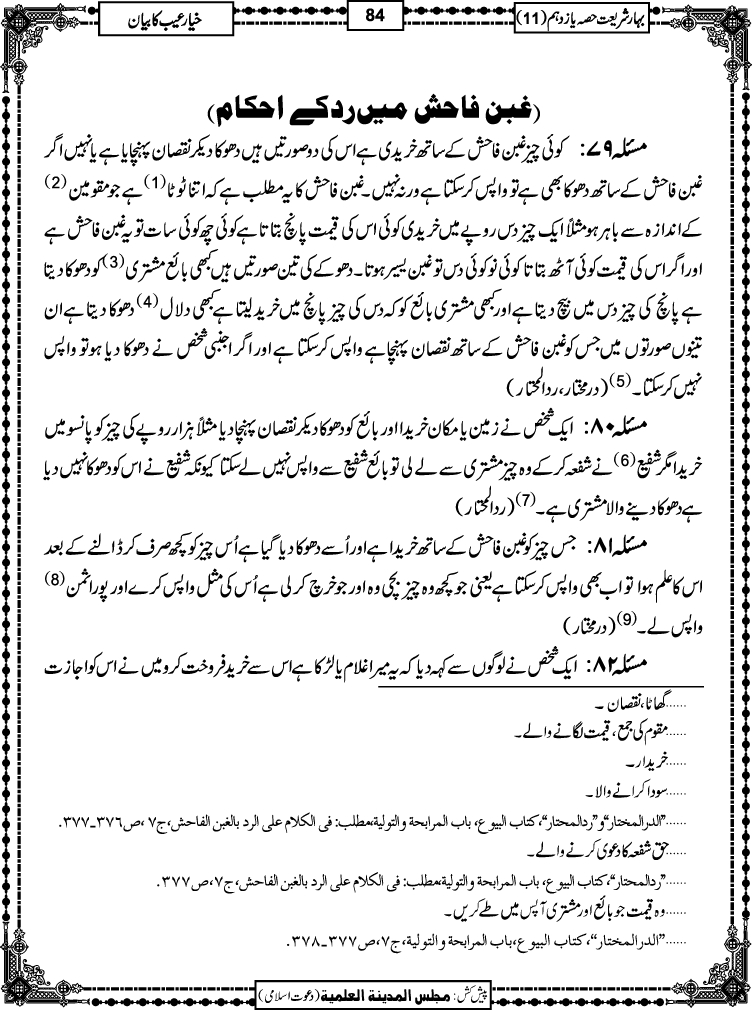 بہارِ شریعت حصہ یازدہم (11)
84
خیارِ عیب کا بیان
(غبن فاحش میں رد کے احکام)
مسئلہ ۷۹: کوئی چیز غبن فاحش کے ساتھ خریدی ہے اس کی دو صورتیں ہیں دھوکا دیکر نقصان پہنچایا ہے یا نہیں اگر
غبن فاحش کے ساتھ دھوکا بھی ہے تو واپس کرسکتا ہے ورنہ نہیں۔ غبن فاحش کا یہ مطلب ہے کہ اتنا ٹوٹا(1) ہے جو مقومین(2)
کے اندازہ سے باہر ہو مثلاً ایک چیز دس روپے میں خریدی کوئی اس کی قیمت پانچ بتاتا ہے کوئی چھ کوئی سات تو یہ غبن فاحش ہے
اور اگر اس کی قیمت کوئی آٹھ بتاتا کوئی نو کوئی دس تو غبن یسیر ہوتا۔ دھوکے کی تین صورتیں ہیں کبھی بائع مشتری(3) کو دھوکا دیتا
ہے پانچ کی چیز دس میں بیچ دیتا ہے اور کبھی مشتری بائع کو کہ دس کی چیز پانچ میں خرید لیتا ہے کبھی دلال(4) دھوکا دیتا ہے ان
تینوں صورتوں میں جس کو غبن فاحش کے ساتھ نقصان پہنچا ہے واپس کرسکتا ہے اور اگر اجنبی شخص نے دھوکا دیا ہو تو واپس
نہیں کرسکتا۔(5) (درمختار، ردالمحتار)
مسئلہ ۸۰: ایک شخص نے زمین یا مکان خریدا اور بائع کو دھوکا دیکر نقصان پہنچا دیا مثلاً ہزار روپے کی چیز کو پانسو میں
خریدا مگر شفیع(6) نے شفعہ کرکے وہ چیز مشتری سے لے لی تو بائع شفیع سے واپس نہیں لے سکتا کیونکہ شفیع نے اس کو دھوکا نہیں دیا
ہے دھوکا دینے والا مشتری ہے۔(7) (ردالمحتار)
مسئلہ ۸۱: جس چیز کو غبن فاحش کے ساتھ خریدا ہے اور اُسے دھوکا دیا گیا ہے اُس چیز کو کچھ صرف کر ڈالنے کے بعد
اس کا علم ہوا تو اب بھی واپس کرسکتا ہے یعنی جو کچھ وہ چیز بچی وہ اور جو خرچ کرلی ہے اُس کی مثل واپس کرے اور پورا ثمن(8)
واپس لے۔(9) (درمختار)
مسئلہ ۸۲: ایک شخص نے لوگوں سے کہہ دیا کہ یہ میرا غلام یا لڑکا ہے اس سے خرید فروخت کرو میں نے اس کو اجازت
......گھاٹا، نقصان ۔
......مقوم کی جمع، قیمت لگانے والے۔
......خریدار۔
......سودا کرانے والا۔
......”الدرالمختار“و”ردالمحتار“، کتاب البیوع، باب المرابحة والتولیة،مطلب: فی الکلام علی الرد بالغبن الفاحش،ج٧ ،ص٣٧٦ـ٣٧٧.
......حق شفعہ کا دعویٰ کرنے والے۔
......”ردالمحتار“،کتاب البیوع، باب المرابحة والتولیة،مطلب: فی الکلام علی الرد بالغبن الفاحش،ج٧،ص٣٧٧.
......وہ قیمت جو بائع اور مشتری آپس میں طے کریں۔
......”الدرالمختار“، کتاب البیوع،باب المرابحة والتولیة، ج٧،ص٣٧٧ـ٣٧٨.
پیش کش: مجلس المدینة العلمیة (دعوت اسلامی)